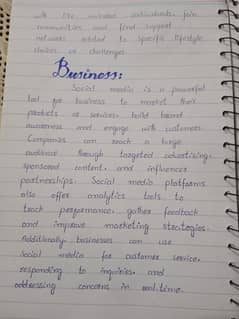 with like minded individuals, join
communities and find support
networks related to specific lifestyle
choices or challenges.
Business:
Social media is a powerful
tool for business to market their
products or services, build brand
awareness and engage with customers.
Companies can reach a large
audience through targeted advertising,
sponsored content, and influencer
partnerships. Social media platforms
also offer analytics tools to
track performance, gather feedback
and improve marketing strategies.
Additionally, businesses can use
social media for customer service,
responding to inquiries, and
addressing concerns in real-time.